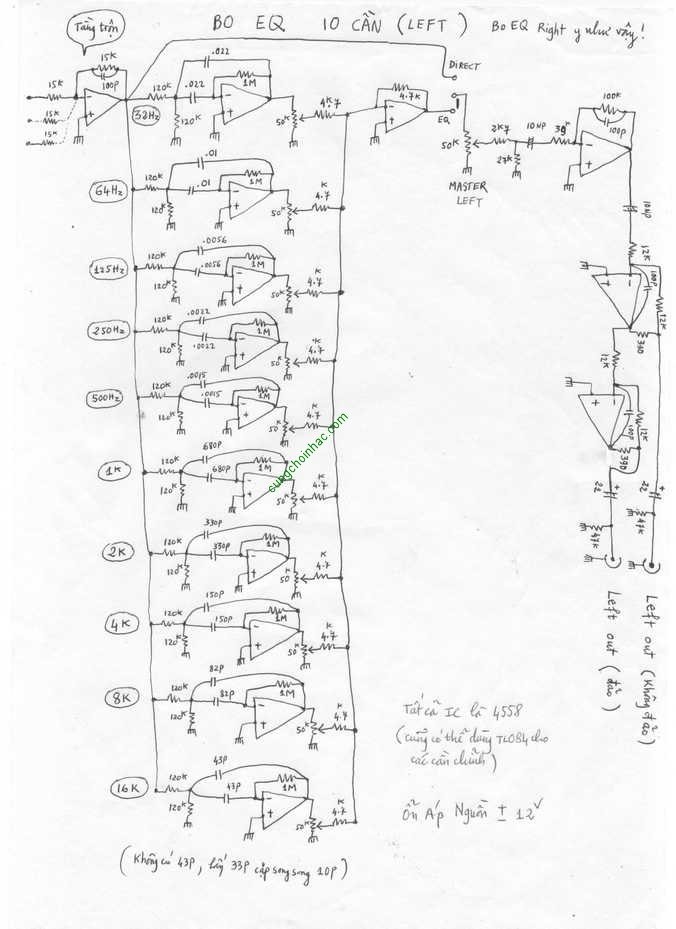 BO EQ 10 CẦN (LEFT) Bo EQ Right y như vậy!
Tầng trộn
15K
100p
15K
15K
15K
120K
.022
.022
1M
32Hz
120K
50K
4K7
4.7K
DIRECT
EQ
50K
MASTER
LEFT
2K7
27K
10MP
39K
100K
100p
64Hz
120K
.01
.01
1M
120K
50K
K
4.7
125Hz
120K
.0056
.0056
1M
120K
50K
K
4.7
250Hz
120K
.0022
.0022
1M
120K
50K
K
4.7
500Hz
120K
.0015
.0015
1M
120K
50K
K
4.7
1K
120K
680p
680p
1M
120K
50K
K
4.7
2K
120K
330p
330p
1M
120K
50K
K
4.7
4K
120K
150p
150p
1M
120K
50K
K
4.7
8K
120K
82p
82p
1M
120K
50K
K
4.7
16K
120K
43p
43p
1M
120K
50K
K
4.7
12K
100p
12K
330
12K
100p
12K
390
22
22
47K
47K
Left out (đảo)
Left out (không đảo)
cungchoinhac.com
Tất cả IC là 4558
(cũng có thể dùng TL084 cho
các cần chỉnh)
Ổn Áp Nguồn ± 12V
(Không có 43p, lấy 33p cặp song song 10p)